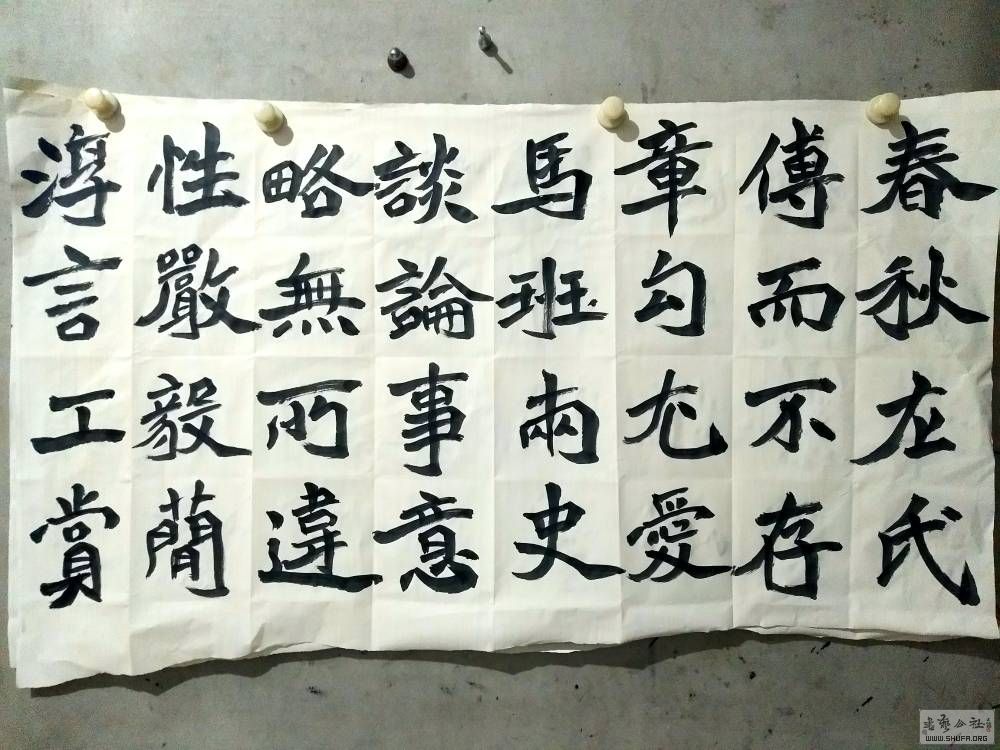 春秋左氏
傳而不存
章句尤愛
馬班兩史
談論事意
略無所違
性嚴毅簡
淳言工賞
書藝公社
WWW.SHUFA.ORG